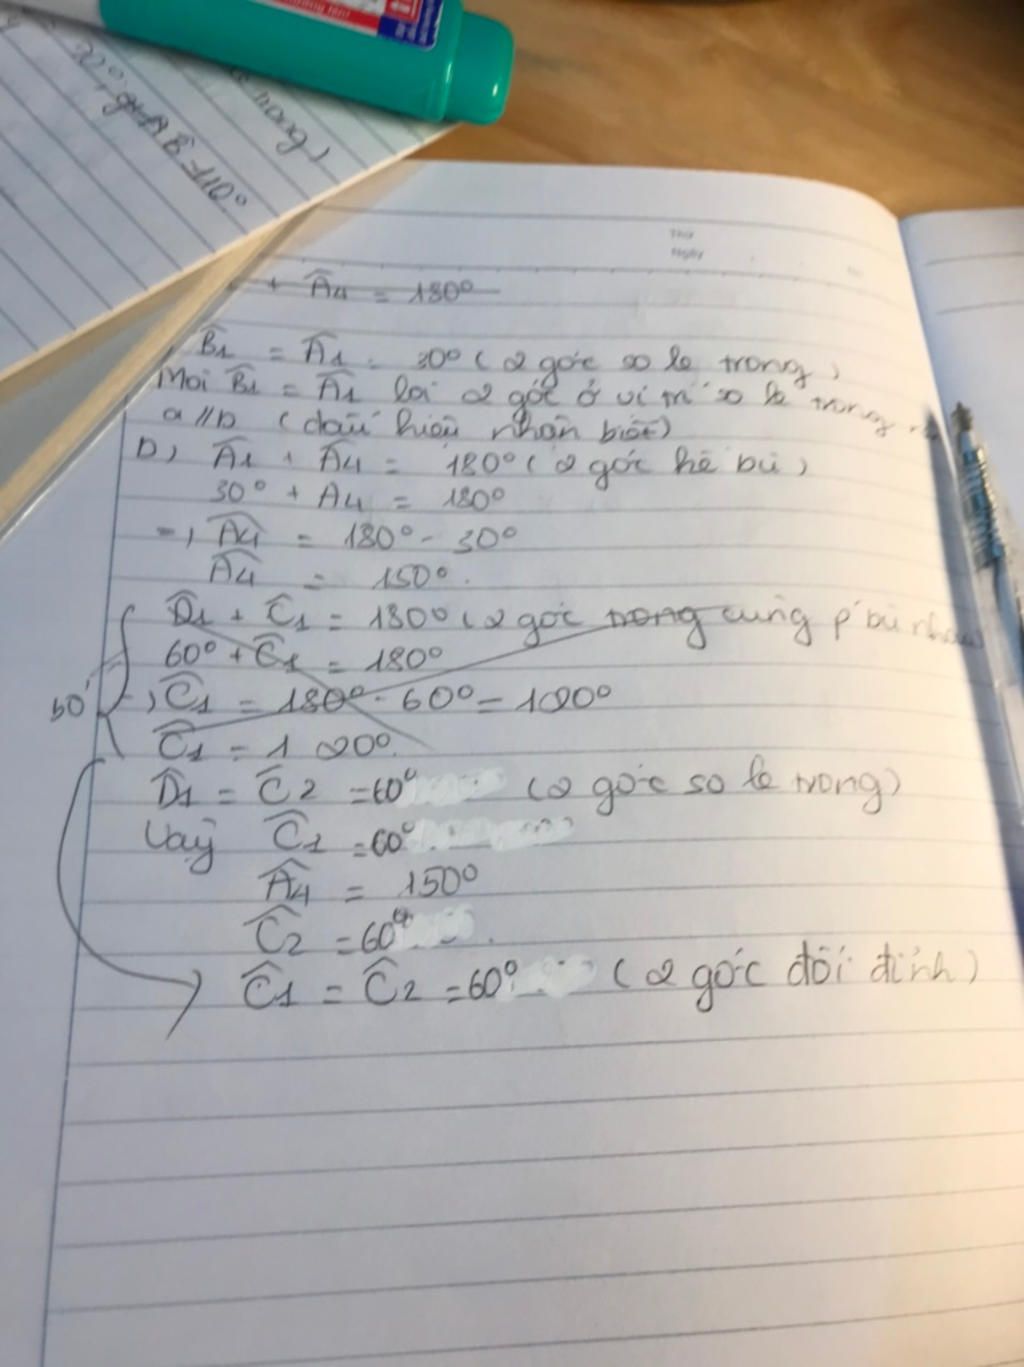 20°, góc B = 110°
trong)
Thứ
Ngày
+ Â4 = 180°
B̂1 = Â1 = 30° (2 góc so le trong)
Mai B̂1 = Â1 lai 2 góc ở vi trí so le trong
a // b (dấu hiệu nhận biết)
b) Â1 + Â4 = 180° (2 góc kề bù)
30° + A4 = 180°
=) Â4 = 180° - 30°
Â4 = 150°.
D̂1 + Ĉ1 = 180° (2 góc trong cùng p' bù nhau)
60° + Ĉ1 = 180°
=) Ĉ1 = 180° - 60° = 120°
Ĉ1 = 120°.
D̂1 = Ĉ2 = 60° (2 góc so le trong)
Vậy Ĉ1 = 60°
Â4 = 150°
Ĉ2 = 60°.
Ĉ1 = Ĉ2 = 60° (2 góc đối đỉnh)